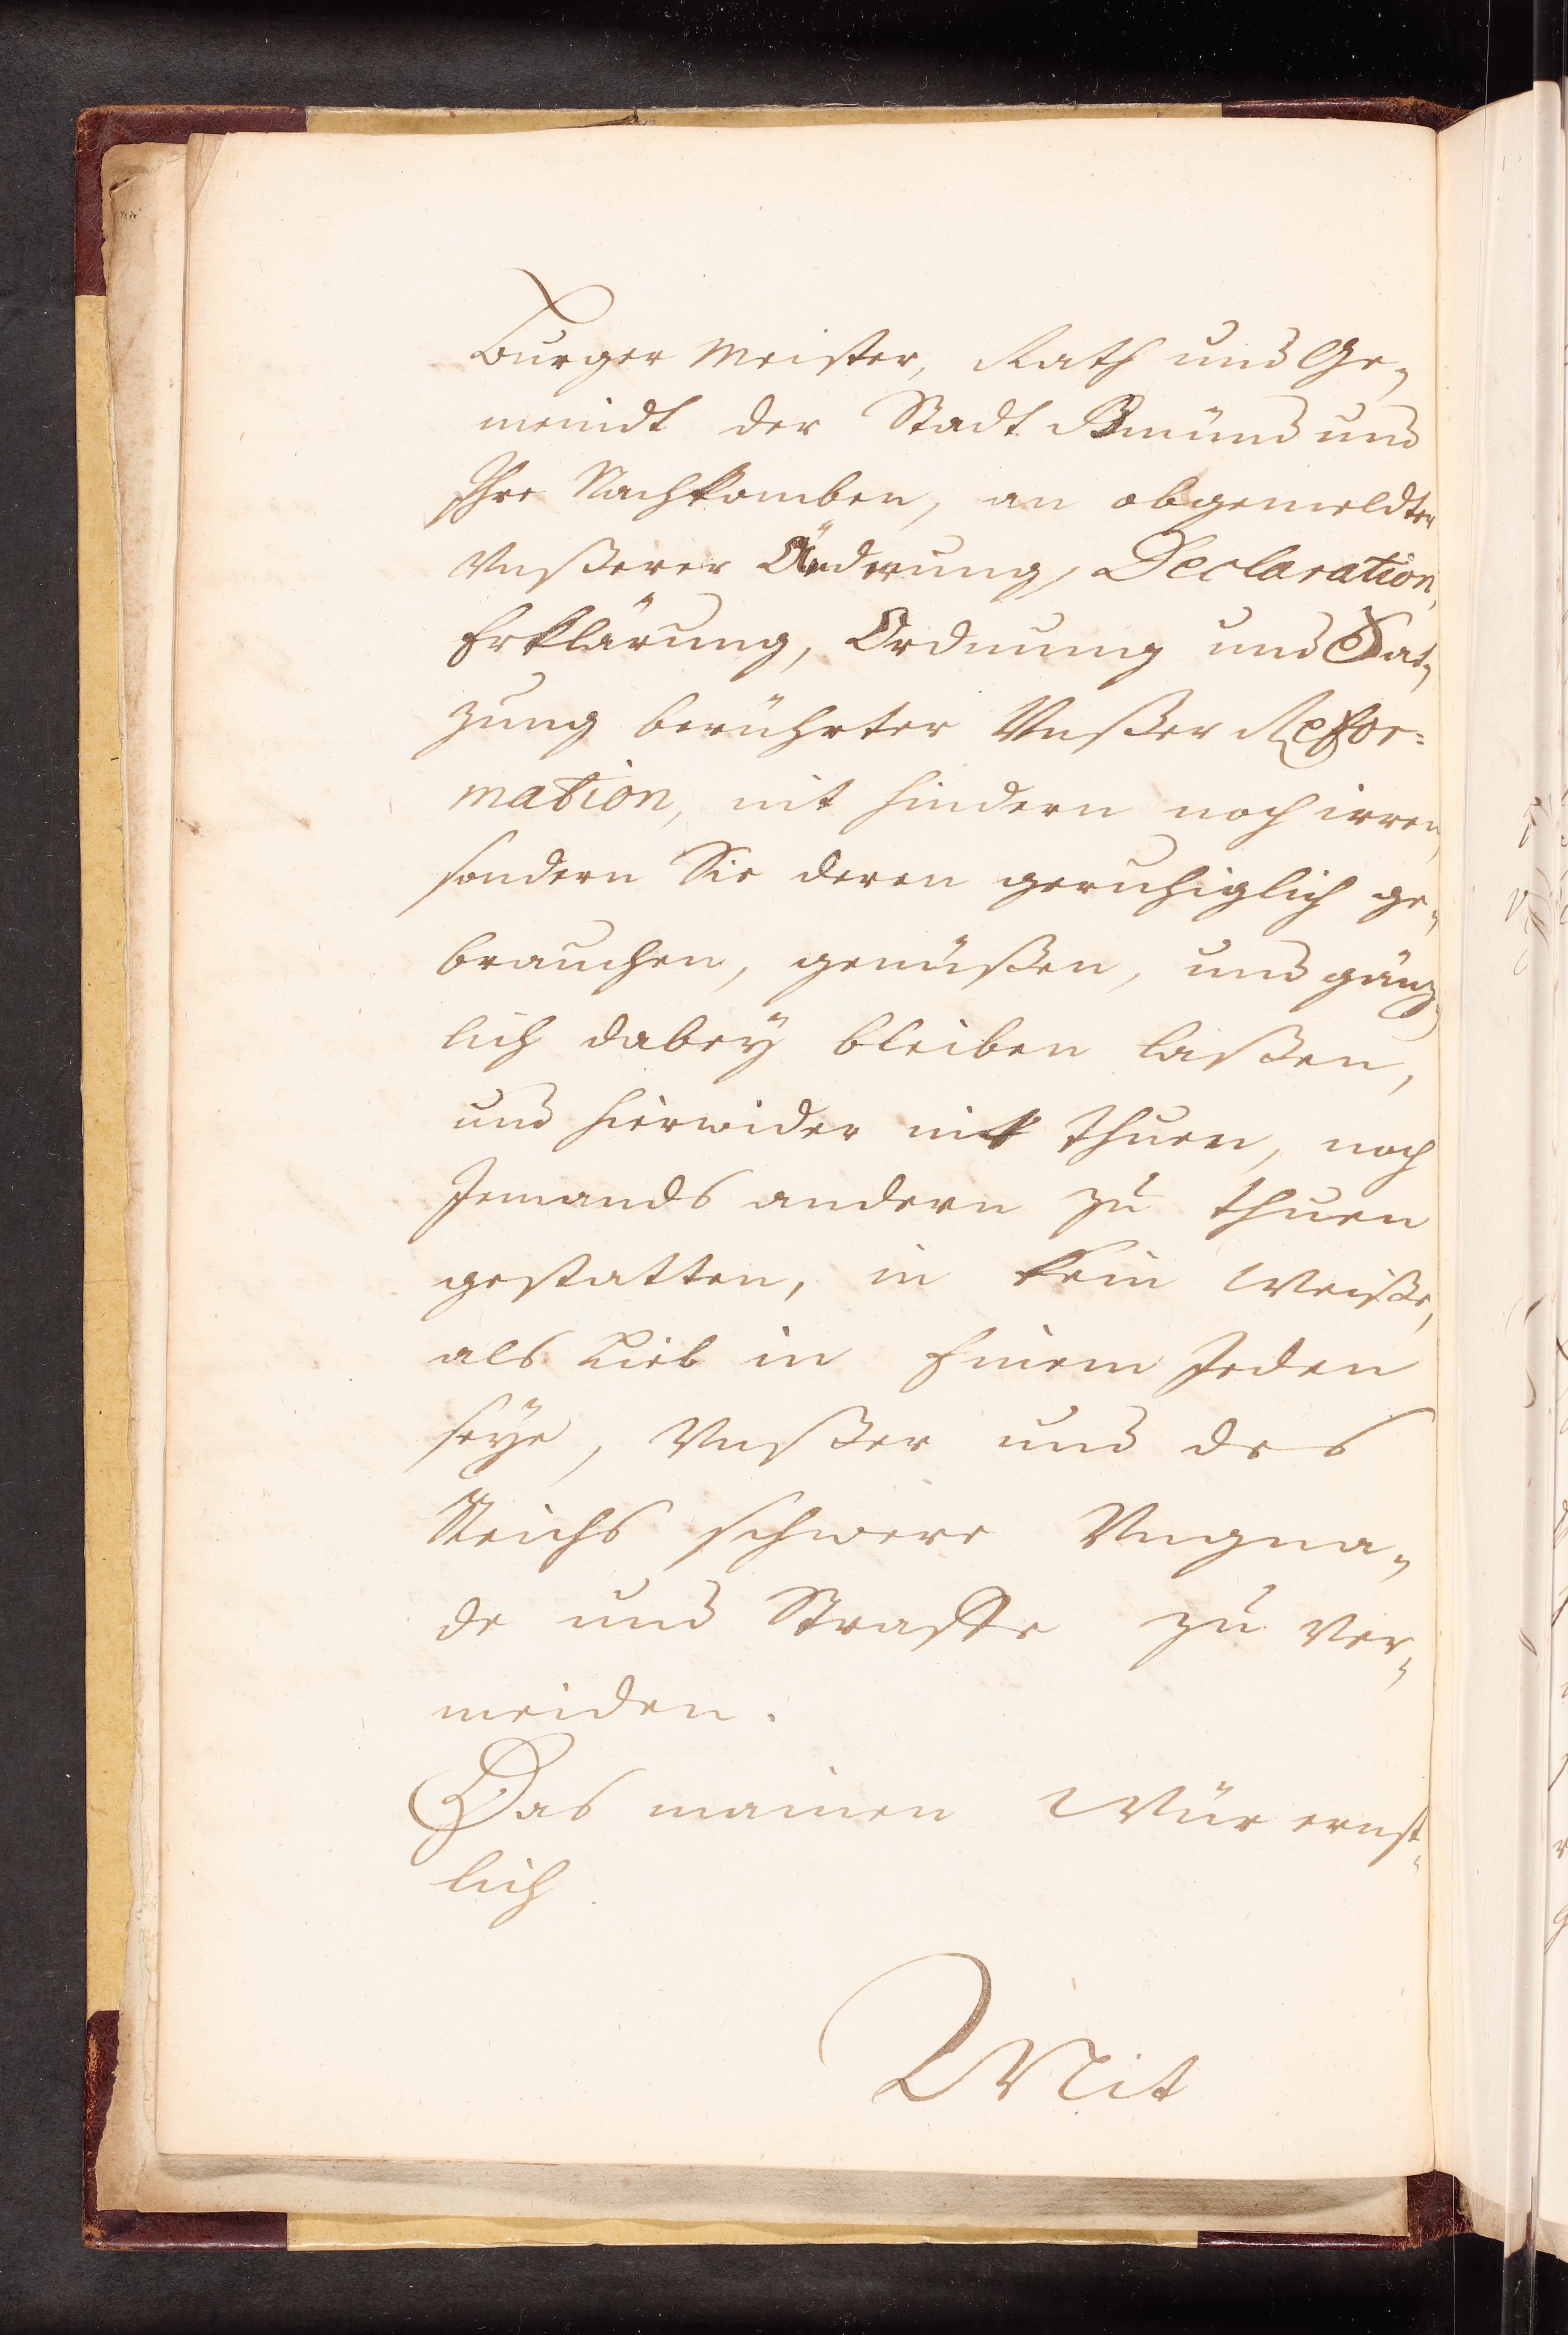 Burger Meister, Rath und Ge„
meindt der Stadt Gmünd und
Ihre Nachkomben, an obgemeldter
Vnßerer Änderung, Declaration,
Erklärung, Ordnung und Sat„
zung berührter Vnßer Refor=
mation, nit hindern noch irren,
sondern Sie deren geruhiglich ge„
brauchen, genüßen, und gänz„
lich dabeÿ bleiben laßen,
und hierwider nit thuen, noch
Jemands andern zu thuen
gestatten, in kein Weiße,
als Lieb in Einem Jeden
seÿe, Vnßer und des
Reichs schwere Vngna„
de und Straffe zu ver„
meiden.
Das mainen Wür ernst„
lich
Mit